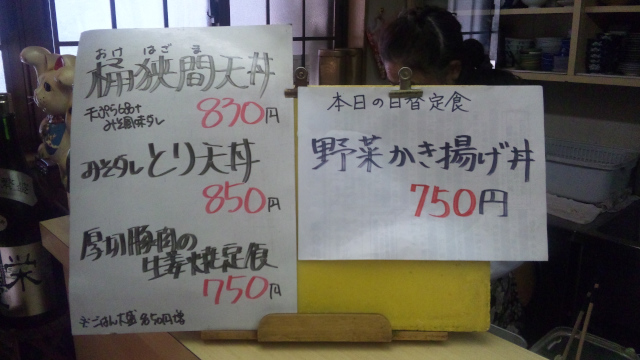 おけ はざま
桶狭間天丼
天ぷら6品+
みそ風味タレ
830円
みそタレとり天丼
850円
厚切豚肉の
生姜焼定食
750円
本日の日替定食
野菜かき揚げ丼
750円
栄